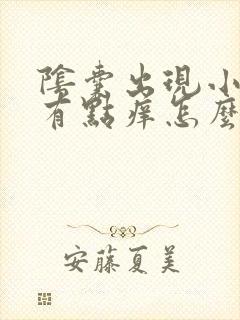 陰囊出現小
有點痒怎麼
安藤夏美